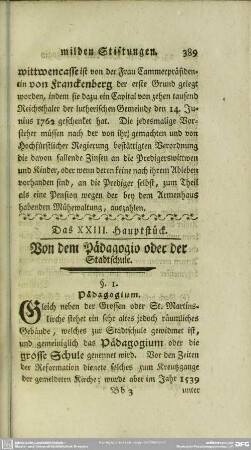 milden Stiftungen. 389
wittwencasse ist von der Frau Cammerpräsiden-
tin von Franckenberg der erste Grund gelegt
worden, indem sie dazu ein Capital von zehen tausend
Reichsthaler der lutherischen Gemeinde den 14. Ju-
nius 1762 geschenket hat. Die jedesmalige Vor-
steher müssen nach der von ihr gemachten und von
Hochfürstlicher Regierung bestättigten Verordnung
die davon fallende Zinsen an die Predigerswittwen
und Kinder, oder wenn deren keine nach ihrem Ableben
vorhanden sind, an die Prediger selbst, zum Theil
als eine Pension wegen der bey dem Armenhaus
habenden Mühewaltung, auszahlen.
Das XXIII. Hauptstück.
Von dem Pädagogio oder der
Stadtschule.
§. 1.
Pädagogium.
Gleich neben der Grossen oder St. Martins-
kirche stehet ein sehr altes jedoch räumliches
Gebäude, welches zur Stadtschule gewidmet ist,
und gemeiniglich das Pädagogium oder die
grosse Schule genennet wird. Vor den Zeiten
der Reformation dienete solches zum Kreutzgange
der gemeldeten Kirche; wurde aber im Jahr 1539
Bb 3 unter